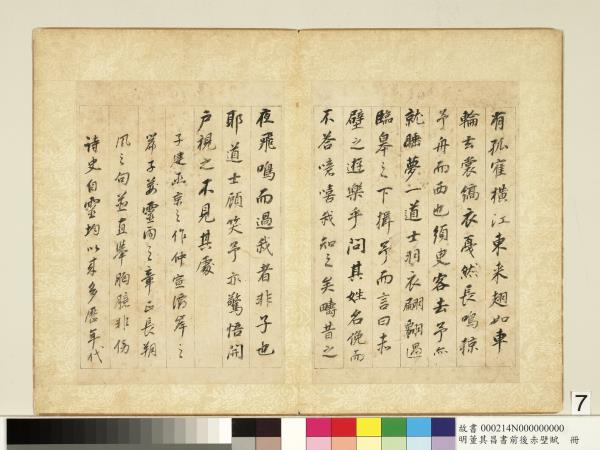 有孤隺橫江東来翅如車
輪玄裳縞衣戛然長鳴掠
予舟而西也須臾客去予亦
就睡夢一道士羽衣翩翻過
臨皋之下揖予而言曰赤
壁之遊樂乎問其姓名俛而
不荅嗚嘻我知之矣疇昔之
夜飛鳴而過我者非子也
耶道士顧笑予亦驚悟開
戶視之不見其處
子建函京之作仲宣灞岸之
篇子荊零雨之章正長朔
風之句並直舉胸臆非傍
詩史自靈均以来多歷年代
7
故書 000214N000000000
明董其昌書前後赤壁賦 冊